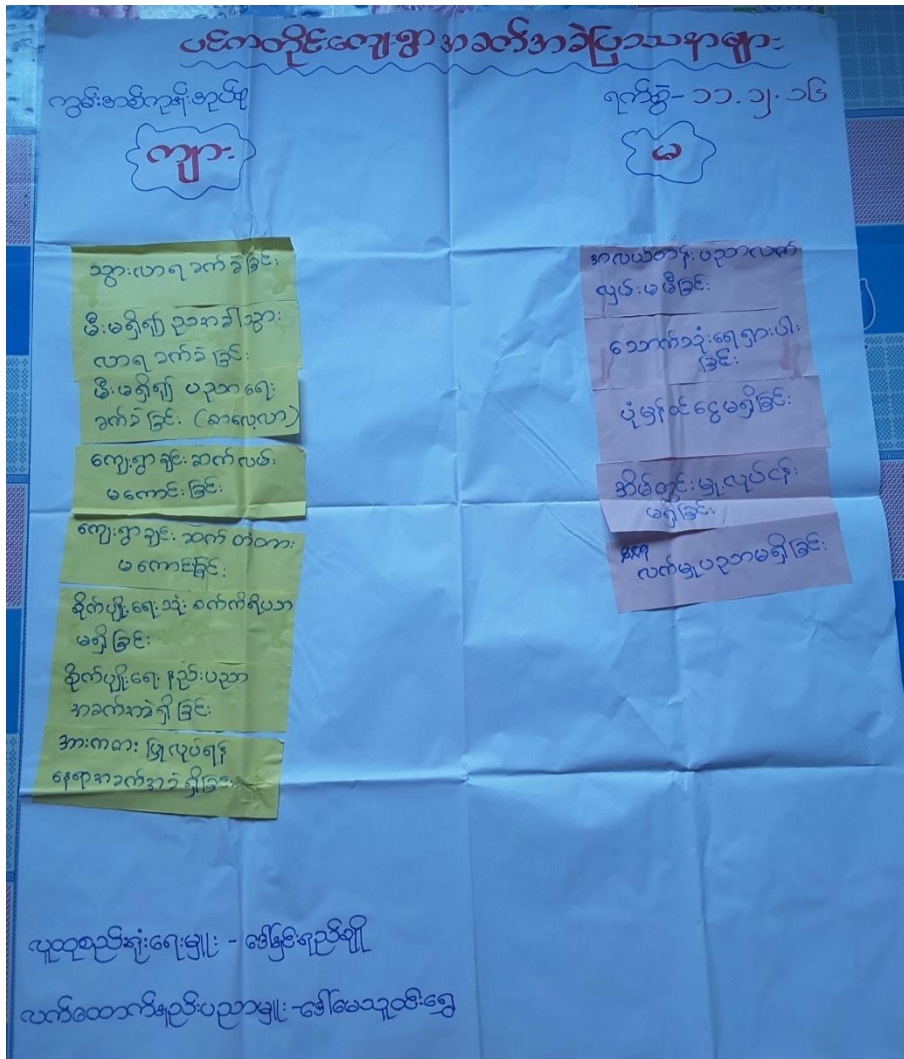 ပင်ကတိုင်ကျေးရွာအခက်အခဲပြဿနာများ
ကွမ်းခြံကုန်းအုပ်စု
ရက်စွဲ- ၁၁.၁၂.၁၆
ကျား
မ
သွားလာရခက်ခဲခြင်း
မီးမရှိ၍ ညအခါသွား
လာရခက်ခဲခြင်း
မီးမရှိ၍ ပညာရေး
ခက်ခဲခြင်း (စာလေ့လာ)
ကျေးရွာချင်းဆက်လမ်း
မကောင်းခြင်း
ကျေးရွာချင်းဆက်တံတား
မကောင်းခြင်း
စိုက်ပျိုးရေးသုံးစက်ကိရိယာ
မရှိခြင်း
စိုက်ပျိုးရေးနည်းပညာ
အခက်အခဲရှိခြင်း
အားကစားပြုလုပ်ရန်
နေရာအခက်အခဲရှိခြင်း
အလယ်တန်းပညာလက်
လှမ်းမမီခြင်း
သောက်သုံးရေရှားပါး
ခြင်း
ပုံမှန်ဝင်ငွေမရှိခြင်း
အိမ်တွင်းမှုလုပ်ငန်း
မရှိခြင်း
လက်မှုပညာမရှိခြင်း
လူထုစည်းရုံးရေးမှူး - ဒေါ်နှင်းရည်ချို
လက်ထောက်နည်းပညာမှူး-ဒေါ်မေသူထိုးရွှေ